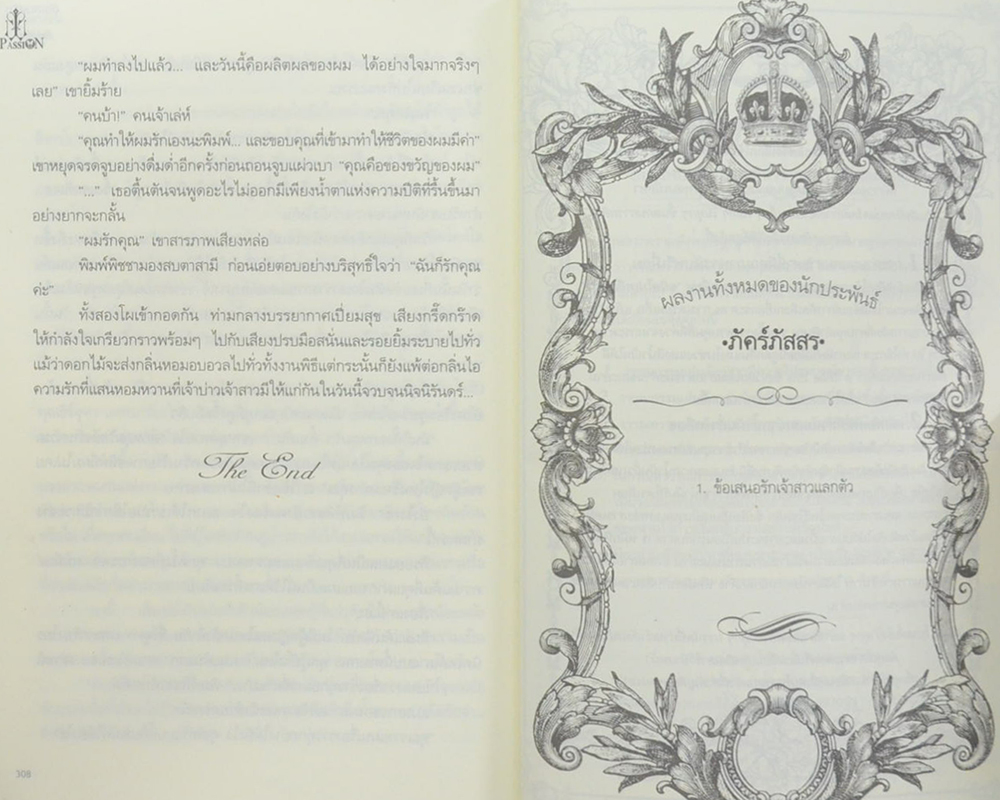 PASSION
“ผมทำลงไปแล้ว... และวันนี้คือผลิตผลของผม ได้อย่างใจมากจริงๆ
เลย” เขายิ้มร้าย
“คนบ้า!” คนเจ้าเล่ห์
“คุณทำให้ผมรักเองนะพิมพ์... และขอบคุณที่เข้ามาทำให้ชีวิตของผมมีค่า”
เขาหยุดจรดจูบอย่างดื่มด่ำอีกครั้งก่อนถอนจูบแผ่วเบา “คุณคือของขวัญของผม”
“...” เธอตื้นตันจนพูดอะไรไม่ออกมีเพียงน้ำตาแห่งความปีติที่รื้นขึ้นมา
อย่างยากจะกลั้น
“ผมรักคุณ” เขาสารภาพเสียงหล่อ
พิมพ์พิชชามองสบตาสามี ก่อนเอ่ยตอบอย่างบริสุทธิ์ใจว่า “ฉันก็รักคุณ
ค่ะ”
ทั้งสองโผเข้ากอดกัน ท่ามกลางบรรยากาศเปี่ยมสุข เสียงกรี๊ดกร๊าด
ให้กำลังใจเกรียวกราวพร้อมๆ ไปกับเสียงปรบมือสนั่นและรอยยิ้มระบายไปทั่ว
แม้ว่าดอกไม้จะส่งกลิ่นหอมอบอวลไปทั่วทั้งงานพิธีแต่กระนั้นก็ยังแพ้ต่อกลิ่นไอ
ความรักที่แสนหอมหวานที่เจ้าบ่าวเจ้าสาวมีให้แก่กันในวันนี้จวบจนนิจนิรันดร์...
The End
308
ผลงานทั้งหมดของนักประพันธ์
•ภัคร์ภัสสร•
1. ข้อเสนอรักเจ้าสาวแลกตัว